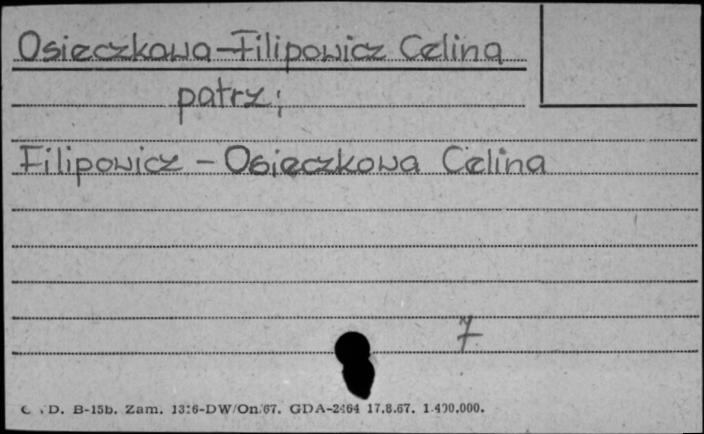 Osieczkowa-Filipowicz Celina
patrz:
Filipowicz - Osieczkowa Celina
7
D. B-15b. Zam. 1316-DW/On/67. GDA-2464 17.8.67. 1.400.000.